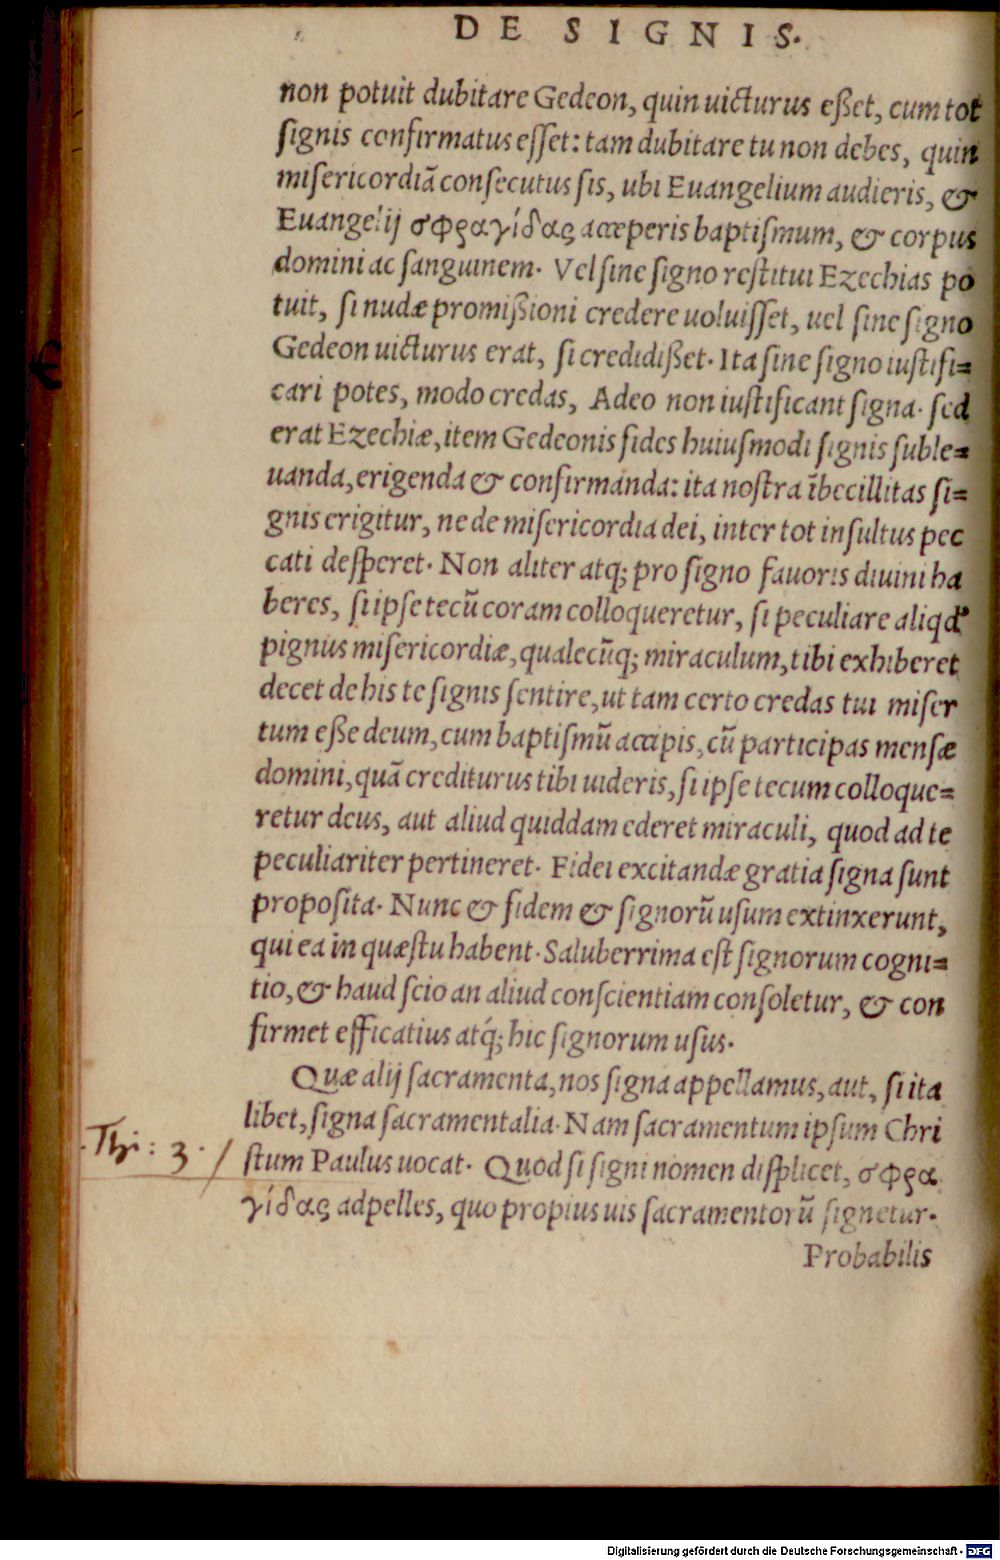 DE SIGNIS.
non potuit dubitare Gedeon, quin uicturus eßet, cum tot
ſignis confirmatus eſſet: tam dubitare tu non debes, quin
miſericordiã conſecutus ſis, ubi Euangelium audieris, &
Euangelij σφραγίδας acceperis baptiſmum, & corpus
domini ac ſanguinem. Vel ſine ſigno reſtitui Ezechias po
tuit, ſi nudæ promißioni credere uoluiſſet, uel ſine ſigno
Gedeon uicturus erat, ſi credidißet. Ita ſine ſigno iuſtifi=
cari potes, modo credas, Adeo non iuſtificant ſigna. ſed
erat Ezechiæ, item Gedeonis fides huiuſmodi ſignis ſuble=
uanda, erigenda & confirmanda: ita noſtra ĩbecillitas ſi=
gnis erigitur, ne de miſericordia dei, inter tot inſultus pec
cati deſperet. Non aliter atq; pro ſigno fauoris diuini ha
beres, ſi ipſe tecũ coram colloqueretur, ſi peculiare aliqd'
pignus miſericordiæ, qualecũq; miraculum, tibi exhiberet
decet de his te ſignis ſentire, ut tam certo credas tui miſer
tum eße deum, cum baptiſmũ accipis, cũ participas menſæ
domini, quã crediturus tibi uideris, ſi ipſe tecum colloque=
retur deus, aut aliud quiddam ederet miraculi, quod ad te
peculiariter pertineret. Fidei excitandæ gratia ſigna ſunt
propoſita. Nunc & fidem & ſignorũ uſum extinxerunt,
qui ea in quæſtu habent. Saluberrima eſt ſignorum cogni=
tio, & haud ſcio an aliud conſcientiam conſoletur, & con
firmet efficatius atq́; hic ſignorum uſus.
Quæ alij ſacramenta, nos ſigna appellamus, aut, ſi ita
libet, ſigna ſacramentalia. Nam ſacramentum ipſum Chri
·Thi: 3· /
ſtum Paulus uocat. Quod ſi ſigni nomen diſplicet, σφρα
γίδας adpelles, quo propius uis ſacramentorũ ſignetur.
Probabilis
Digitalisierung gefördert durch die Deutsche Forschungsgemeinschaft - DFG